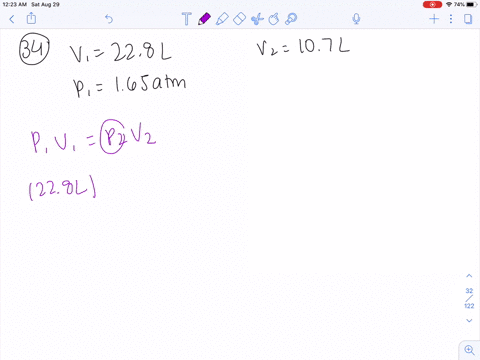 12:23 AM Sat Aug 29
74%
34 V₁ = 22.8 L V₂ = 10.7 L
P₁ = 1.65 atm
P₁ V₁ = P₂ V₂
(22.8L)
32
122